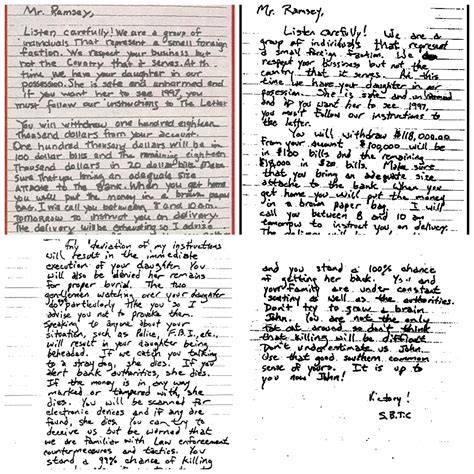 Mr. Ramsey,
Listen carefully! We are a group of
individuals That represent a small foreign
faction. We respect your business but
not the Country that it serves. At this
time we have your daughter in our
possession. She is safe and unharmed and
if you want her to see 1997, you
must follow our instructions to The Letter
You will withdraw one hundred eighteen
Thousand dollars from your account.
One hundred Thousand dollars will be in
100 dollar bills and The remaining eighteen
Thousand dollars in 20 dollar bills. Make
sure That you bring an adequate size
Attache to The Bank. When you get home
you will put the money in a brown paper
bag. I will call you between 8 and 10 a.m.
Tomorrow to instruct you on delivery.
The delivery will be exhausting so I advise
Mr. Ramsey,
Listen carefully! We are a
group of individuals that represent
a small foreign faction. We
respect your business but not the
country that it serves. At this
time we have your daughter in our
posession. She is safe and unharmed
and if you want her to see 1997,
you must follow our instructions to
the letter.
You will withdraw $118,000.00
from your account. $100,000 will be
in $100 bills and the remaining
$18,000 in $20 bills. Make sure
that you bring an adequate size
attache to the bank. When you
get home you will put the money
in a brown paper bag. I will
call you between 8 and 10 am
tomorrow to instruct you on delivery.
The delivery will be
Any deviation of my instructions
will result in the immediate
execution of your daughter. You
will also be denied her remains
for proper burial. The two
gentlemen watching over your daughter
do particularly like you so I
advise you not to provoke them.
Speaking to anyone about your
situation, such as Police, F.B.I., etc.,
will result in your daughter being
beheaded. If we catch you talking
to a stray dog, she dies. If you
alert bank authorities, she dies.
If the money is in any way
marked or tampered with, she
dies. You will be scanned for
electronic devices and if any are
found, she dies. You can try to
deceive us but be warned that
we are familiar with Law enforcement
countermeasures and tactics. You
stand a 99% chance of killing
and you stand a 100% chance
of getting her back. You and
your family are under constant
scrutiny as well as the authorities.
Don't try to grow a brain
John. You are not the only
fat cat around so don't think
that killing will be difficult.
Don't underestimate us John.
Use that good, southern common
sense of yours. It is up to
you now John!
Victory!
S.B.T.C